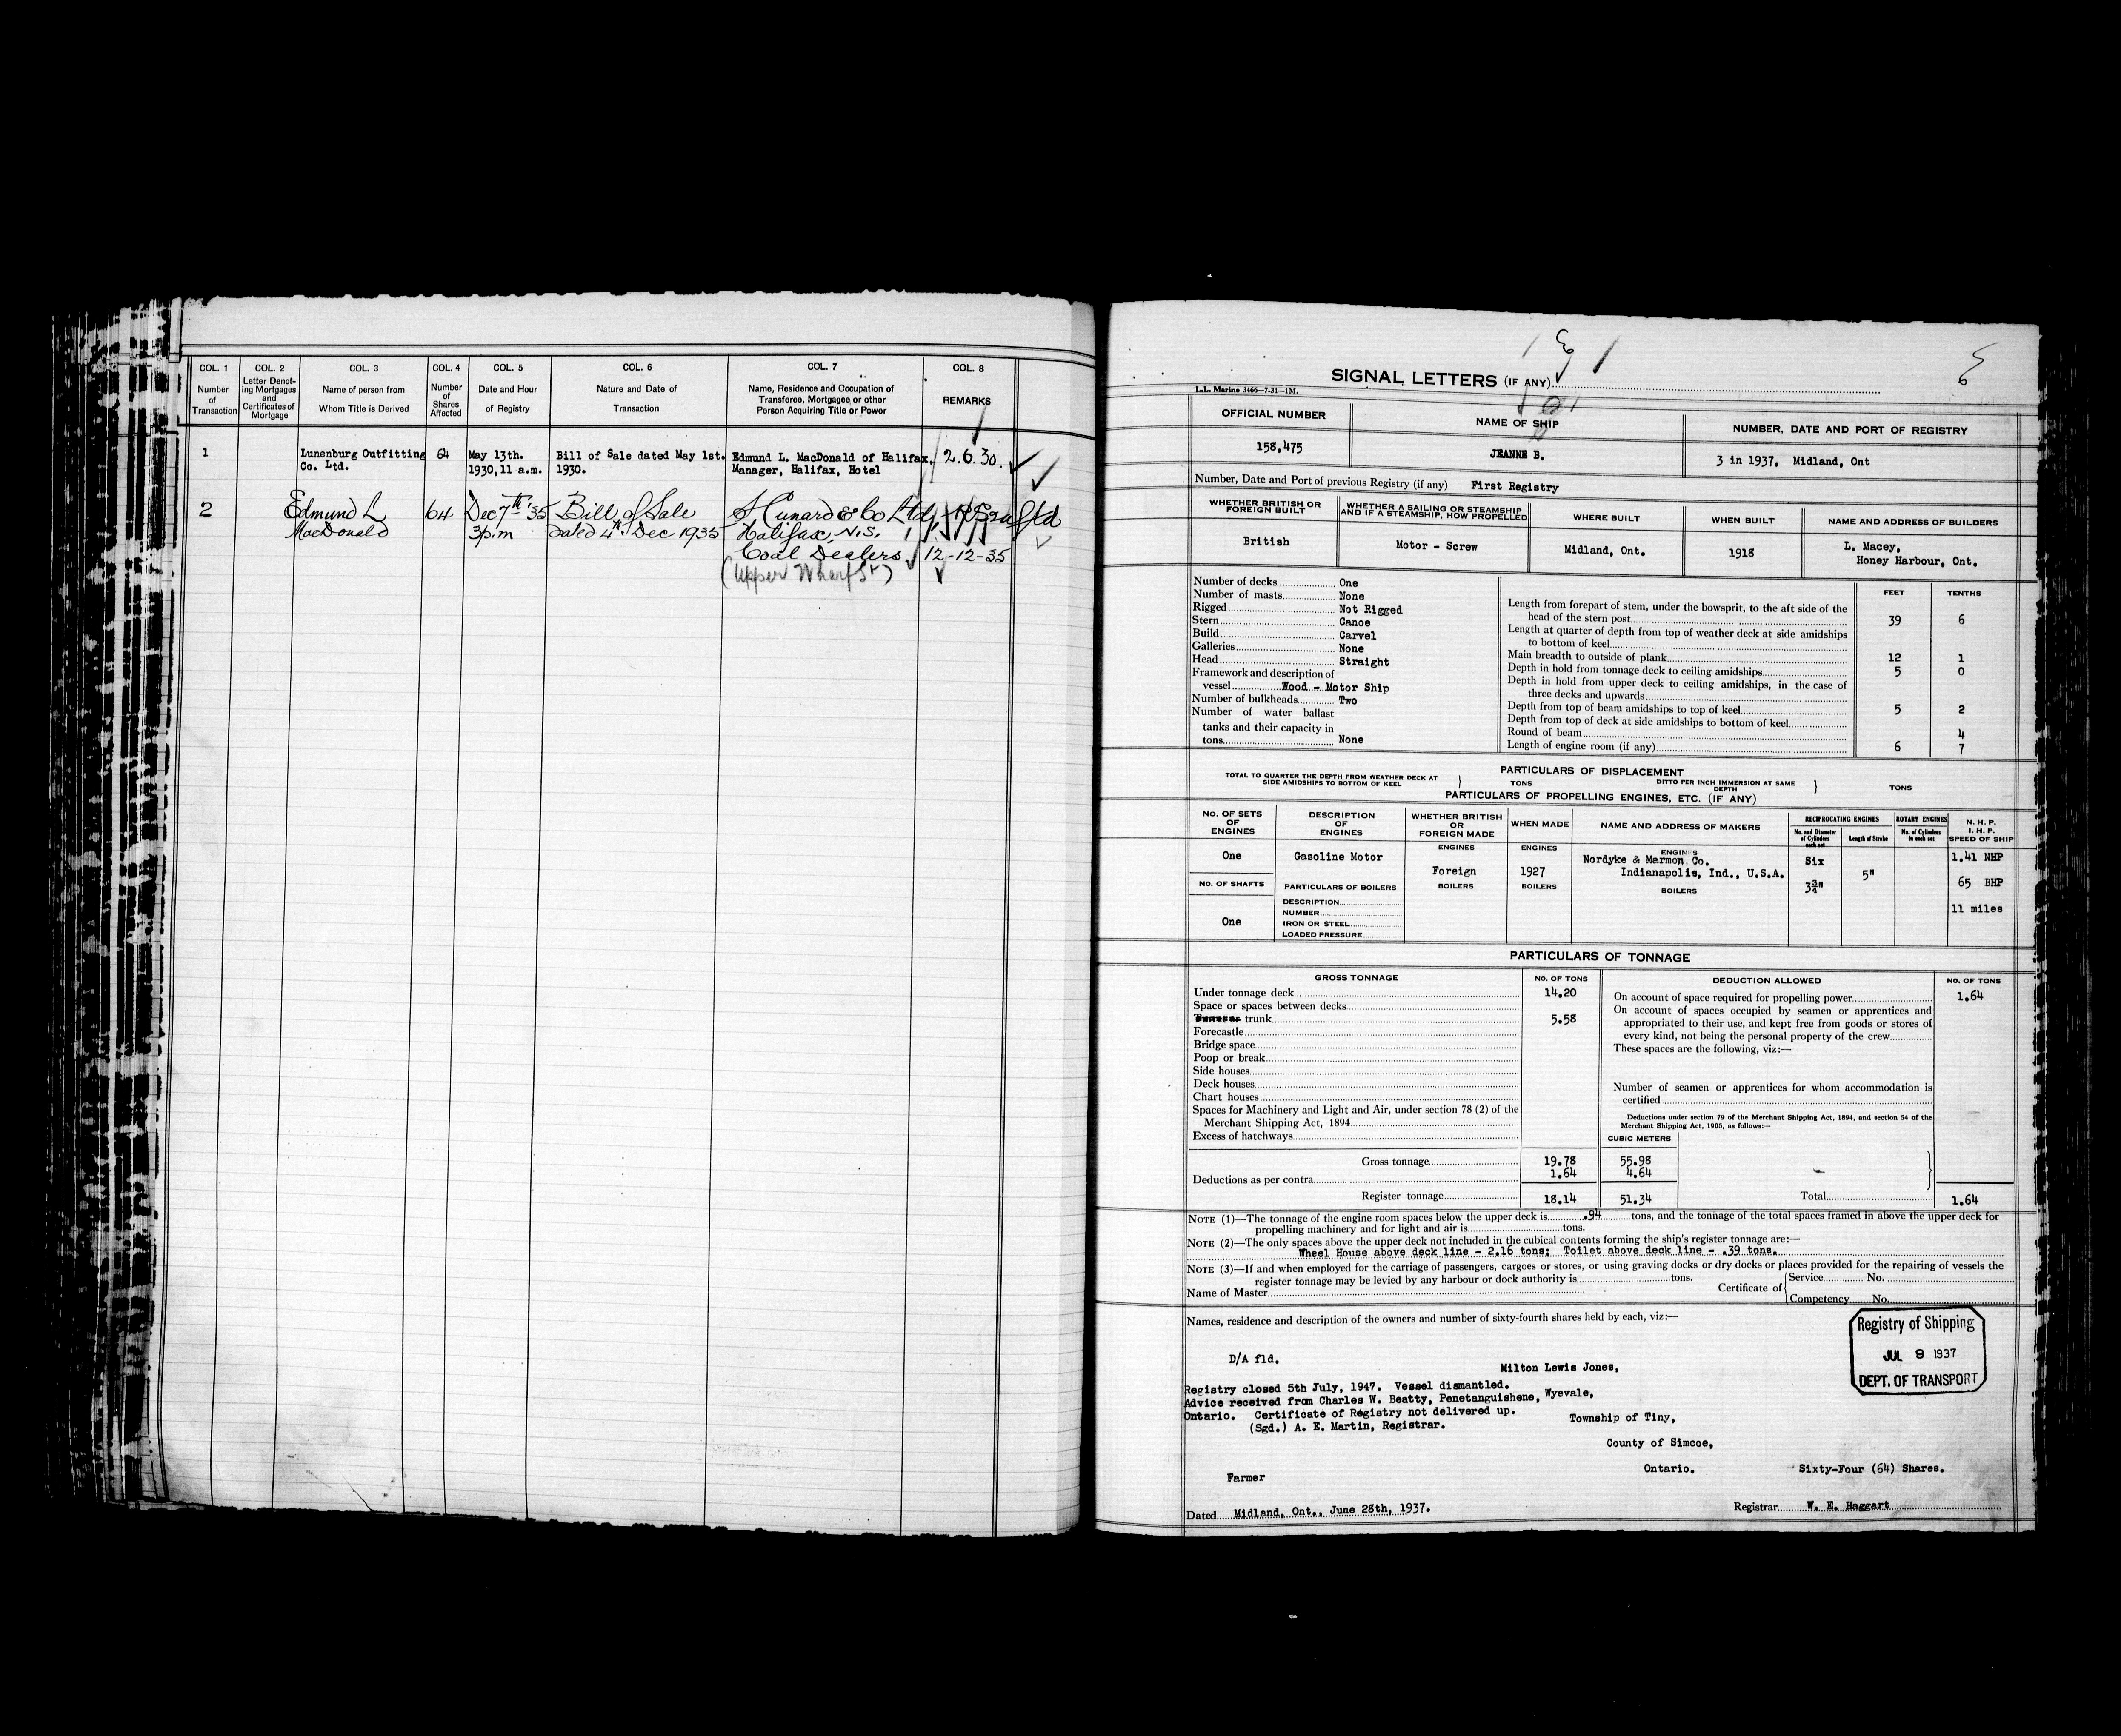 COL. 1 COL. 2 COL. 3 COL. 4 COL. 5 COL. 6 COL. 7 COL. 8
Number of Transaction
Letter Denoting Mortgages and Certificates of Mortgage
Name of person from Whom Title is Derived
Number of Shares Affected
Date and Hour of Registry
Nature and Date of Transaction
Name, Residence and Occupation of Transferee, Mortgagee or other Person Acquiring Title or Power
REMARKS
1 Lunenburg Outfitting 64 May 13th. Bill of Sale dated May 1st. Edmund L. MacDonald of Halifax, 2.6.30.
Co. Ltd. 1930, 11 a.m. 1930. Manager, Halifax, Hotel
2 Edmund L 64 Dec 7th '35 Bill of Sale S Cunard & Co Ltd,
MacDonald 3 p.m dated 4th Dec 1935 Halifax, N.S.
Coal Dealers 12-12-35
(Upper Wharf St)
SIGNAL LETTERS (IF ANY)
L.L. Marine 3466—7-31—1M.
OFFICIAL NUMBER NAME OF SHIP NUMBER, DATE AND PORT OF REGISTRY
158,475 JEANNE B. 3 in 1937, Midland, Ont
Number, Date and Port of previous Registry (if any) First Registry
WHETHER BRITISH OR FOREIGN BUILT
WHETHER A SAILING OR STEAMSHIP AND IF A STEAMSHIP, HOW PROPELLED
WHERE BUILT WHEN BUILT NAME AND ADDRESS OF BUILDERS
British Motor - Screw Midland, Ont. 1918 L. Macey,
Honey Harbour, Ont.
Number of decks One
Number of masts None
Rigged Not Rigged
Stern Canoe
Build Carvel
Galleries None
Head Straight
Framework and description of
vessel Wood - Motor Ship
Number of bulkheads Two
Number of water ballast
tanks and their capacity in
tons None
FEET TENTHS
Length from forepart of stem, under the bowsprit, to the aft side of the
head of the stern post 39 6
Length at quarter of depth from top of weather deck at side amidships
to bottom of keel
Main breadth to outside of plank 12 1
Depth in hold from tonnage deck to ceiling amidships 5 0
Depth in hold from upper deck to ceiling amidships, in the case of
three decks and upwards
Depth from top of beam amidships to top of keel 5 2
Depth from top of deck at side amidships to bottom of keel
Round of beam 4
Length of engine room (if any) 6 7
PARTICULARS OF DISPLACEMENT
TOTAL TO QUARTER THE DEPTH FROM WEATHER DECK AT SIDE AMIDSHIPS TO BOTTOM OF KEEL } TONS
DITTO PER INCH IMMERSION AT SAME DEPTH } TONS
PARTICULARS OF PROPELLING ENGINES, ETC. (IF ANY)
No. OF SETS OF ENGINES
DESCRIPTION OF ENGINES
WHETHER BRITISH OR FOREIGN MADE
WHEN MADE
NAME AND ADDRESS OF MAKERS
RECIPROCATING ENGINES
No. and Diameter of Cylinders each set
Length of Stroke
ROTARY ENGINES
No. of Cylinders in each set
N. H. P.
I. H. P.
SPEED OF SHIP
ENGINES ENGINES ENGINES
One Gasoline Motor Foreign 1927 Nordyke & Marmon Co.
Indianapolis, Ind., U.S.A.
Six 3¾" 5"
1.41 NHP
65 BHP
11 miles
NO. OF SHAFTS
One
PARTICULARS OF BOILERS BOILERS BOILERS BOILERS
DESCRIPTION
NUMBER
IRON OR STEEL
LOADED PRESSURE
PARTICULARS OF TONNAGE
GROSS TONNAGE NO. OF TONS
Under tonnage deck 14.20
Space or spaces between decks
trunk 5.58
Forecastle
Bridge space
Poop or break
Side houses
Deck houses
Chart houses
Spaces for Machinery and Light and Air, under section 78 (2) of the
Merchant Shipping Act, 1894
Excess of hatchways
CUBIC METERS
Gross tonnage 19.78 55.98
Deductions as per contra 1.64 4.64
Register tonnage 18.14 51.34
DEDUCTION ALLOWED NO. OF TONS
On account of space required for propelling power 1.64
On account of spaces occupied by seamen or apprentices and
appropriated to their use, and kept free from goods or stores of
every kind, not being the personal property of the crew
These spaces are the following, viz:—
Number of seamen or apprentices for whom accommodation is
certified
Deductions under section 79 of the Merchant Shipping Act, 1894, and section 54 of the
Merchant Shipping Act, 1906, as follows:—
Total 1.64
NOTE (1)—The tonnage of the engine room spaces below the upper deck is .94 tons, and the tonnage of the total spaces framed in above the upper deck for
propelling machinery and for light and air is tons.
NOTE (2)—The only spaces above the upper deck not included in the cubical contents forming the ship's register tonnage are:—
Wheel House above deck line - 2.16 tons; Toilet above deck line - .39 tons.
NOTE (3)—If and when employed for the carriage of passengers, cargoes or stores, or using graving docks or dry docks or places provided for the repairing of vessels the
register tonnage may be levied by any harbour or dock authority is tons.
Name of Master Certificate of { Service No.
Competency No.
Names, residence and description of the owners and number of sixty-fourth shares held by each, viz:—
Registry of Shipping
JUL 9 1937
DEPT. OF TRANSPORT
D/A fld.
Milton Lewis Jones,
Registry closed 5th July, 1947. Vessel dismantled.
Advice received from Charles W. Beatty, Penetanguishene,
Ontario. Certificate of Registry not delivered up.
(Sgd.) A. E. Martin, Registrar.
Wyevale,
Township of Tiny,
County of Simcoe,
Ontario. Sixty-Four (64) Shares.
Farmer
Dated Midland, Ont., June 28th, 1937.
Registrar W. E. Haggart